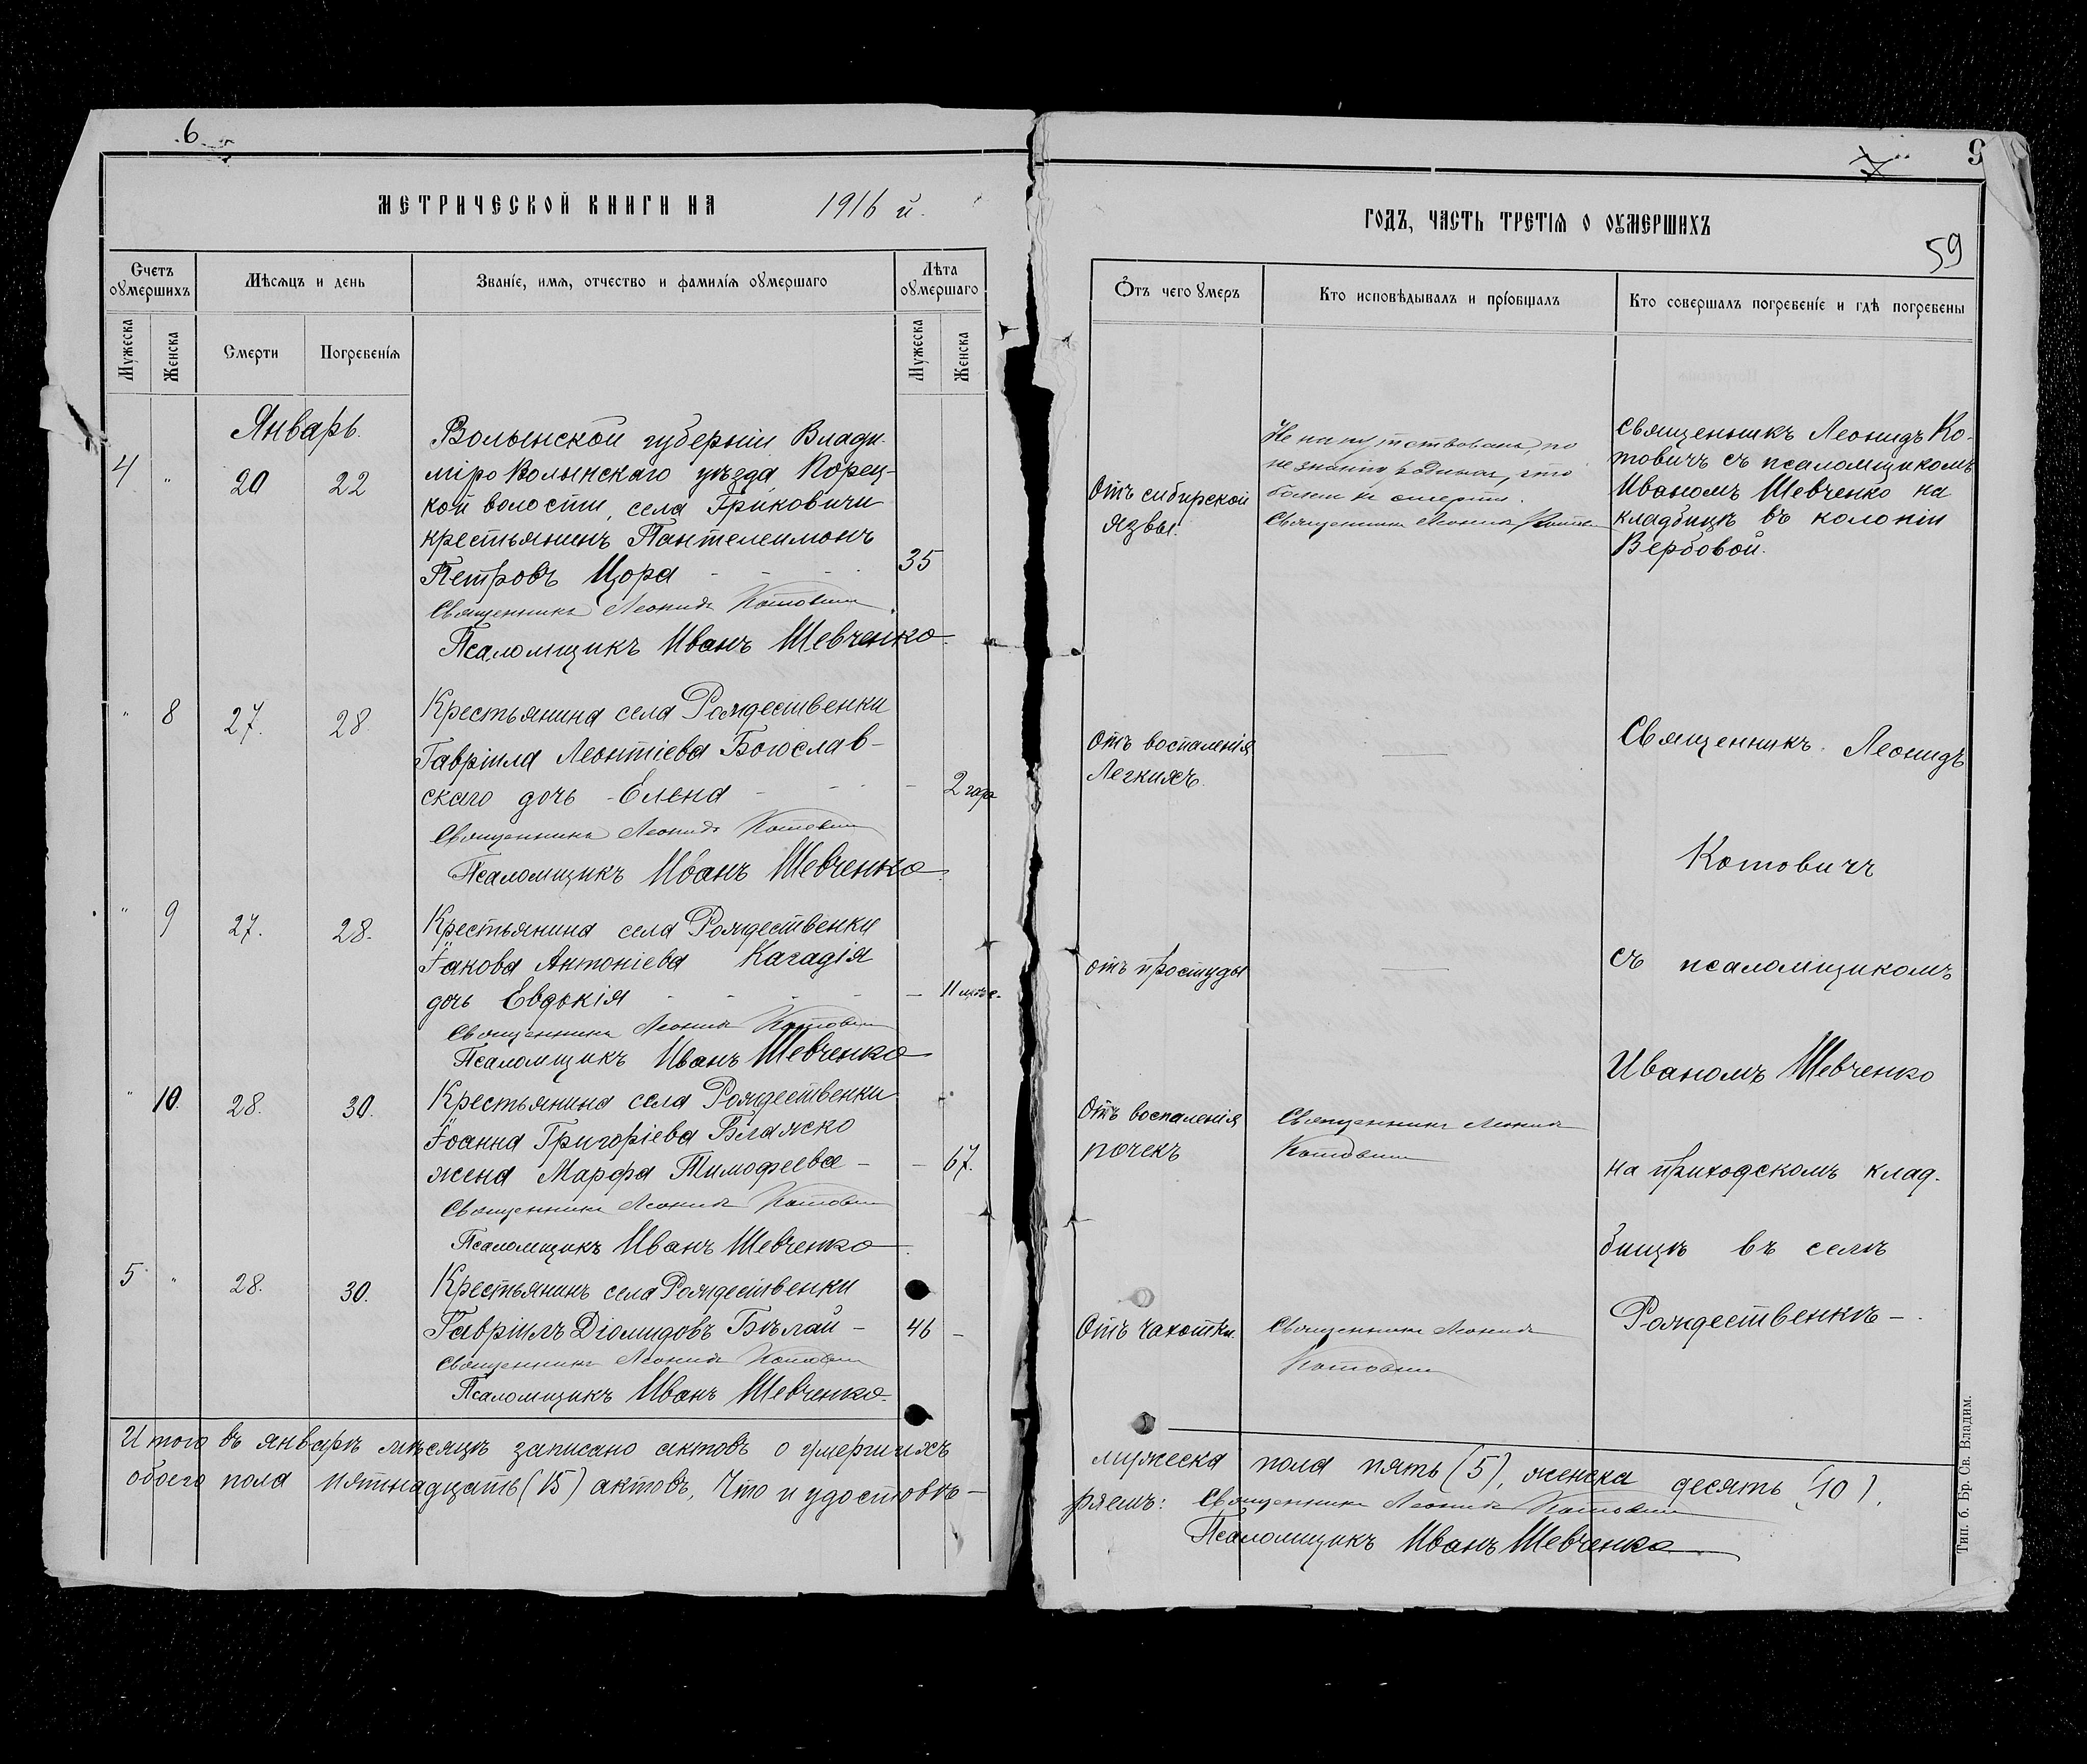 6
МЕТРИЧЕСКОЙ КНИГИ НА 1916 й.
Счетъ оумершихъ
Мѣсяцъ и день
Званіе, имя, отчество и фамилія оумершаго
Лѣта оумершаго
Мужеска
Женска
Смерти
Погребенія
Мужеска
Женска
Январь.
4 " 20 22
Волынской губерніи Влади-
міро Волынскаго уѣзда, Корец-
кой волости, села Гриковичи
крестьянинъ Пантелеимонъ
Петровъ Цора - - - 35
Священникъ Леонидъ Котовичъ
Псаломщикъ Иванъ Шевченко.
" 8 27. 28.
Крестьянина села Рождественки
Гавріила Леонтіева Богослав-
скаго дочь Елена - - - - 2 года
Священникъ Леонидъ Котовичъ
Псаломщикъ Иванъ Шевченко.
" 9 27. 28.
Крестьянина села Рождественки
Іакова Антоніева Качадія
дочь Евдокія - - - - - 11 мѣс.
Священникъ Леонидъ Котовичъ
Псаломщикъ Иванъ Шевченко
" 10. 28. 30.
Крестьянина села Рождественки
Іоанна Григоріева Бляжско
жена Марфа Тимофеева - - 67.
Священникъ Леонидъ Котовичъ
Псаломщикъ Иванъ Шевченко.
5 " 28. 30.
Крестьянинъ села Рождественки
Гавріилъ Діомидовъ Бѣлай - 46 -
Священникъ Леонидъ Котовичъ
Псаломщикъ Иванъ Шевченко.
Итого въ январѣ мѣсяцѣ записано актовъ о умершихъ
обоего пола пятнадцать (15) актовъ, Что и удостовѣ-
9
59
ГОДЪ, ЧАСТЬ ТРЕТІЯ О ОУМЕРШИХЪ
Отъ чего умеръ
Кто исповѣдывалъ и пріобщалъ
Кто совершалъ погребеніе и гдѣ погребены
Отъ сибирской
язвы.
Не напутствованъ, по
незнанію родными, что
болѣнъ к смерти.
Священникъ Леонидъ Котович
священникъ Леонидъ Ко-
товичъ съ псаломщикомъ
Иваномъ Шевченко на
кладбищѣ въ колоніи
Вербовой.
Отъ воспаленія
Легкихъ.
—
Священникъ Леонидъ
Котовичъ
отъ простуды
—
съ псаломщикомъ
Иваномъ Шевченко
Отъ воспаленія
почекъ
Священникъ Леонидъ
Котовичъ
на приходскомъ клад-
бищѣ въ селѣ
Рождественкѣ -.
Отъ чахотки.
Священникъ Леонидъ
Котовичъ
мужеска пола пять (5), женска десять (10),
ряемъ: Священникъ Леонидъ Котовичъ
Псаломщикъ Иванъ Шевченко.
Тип. б. Бр. Св. Владим.